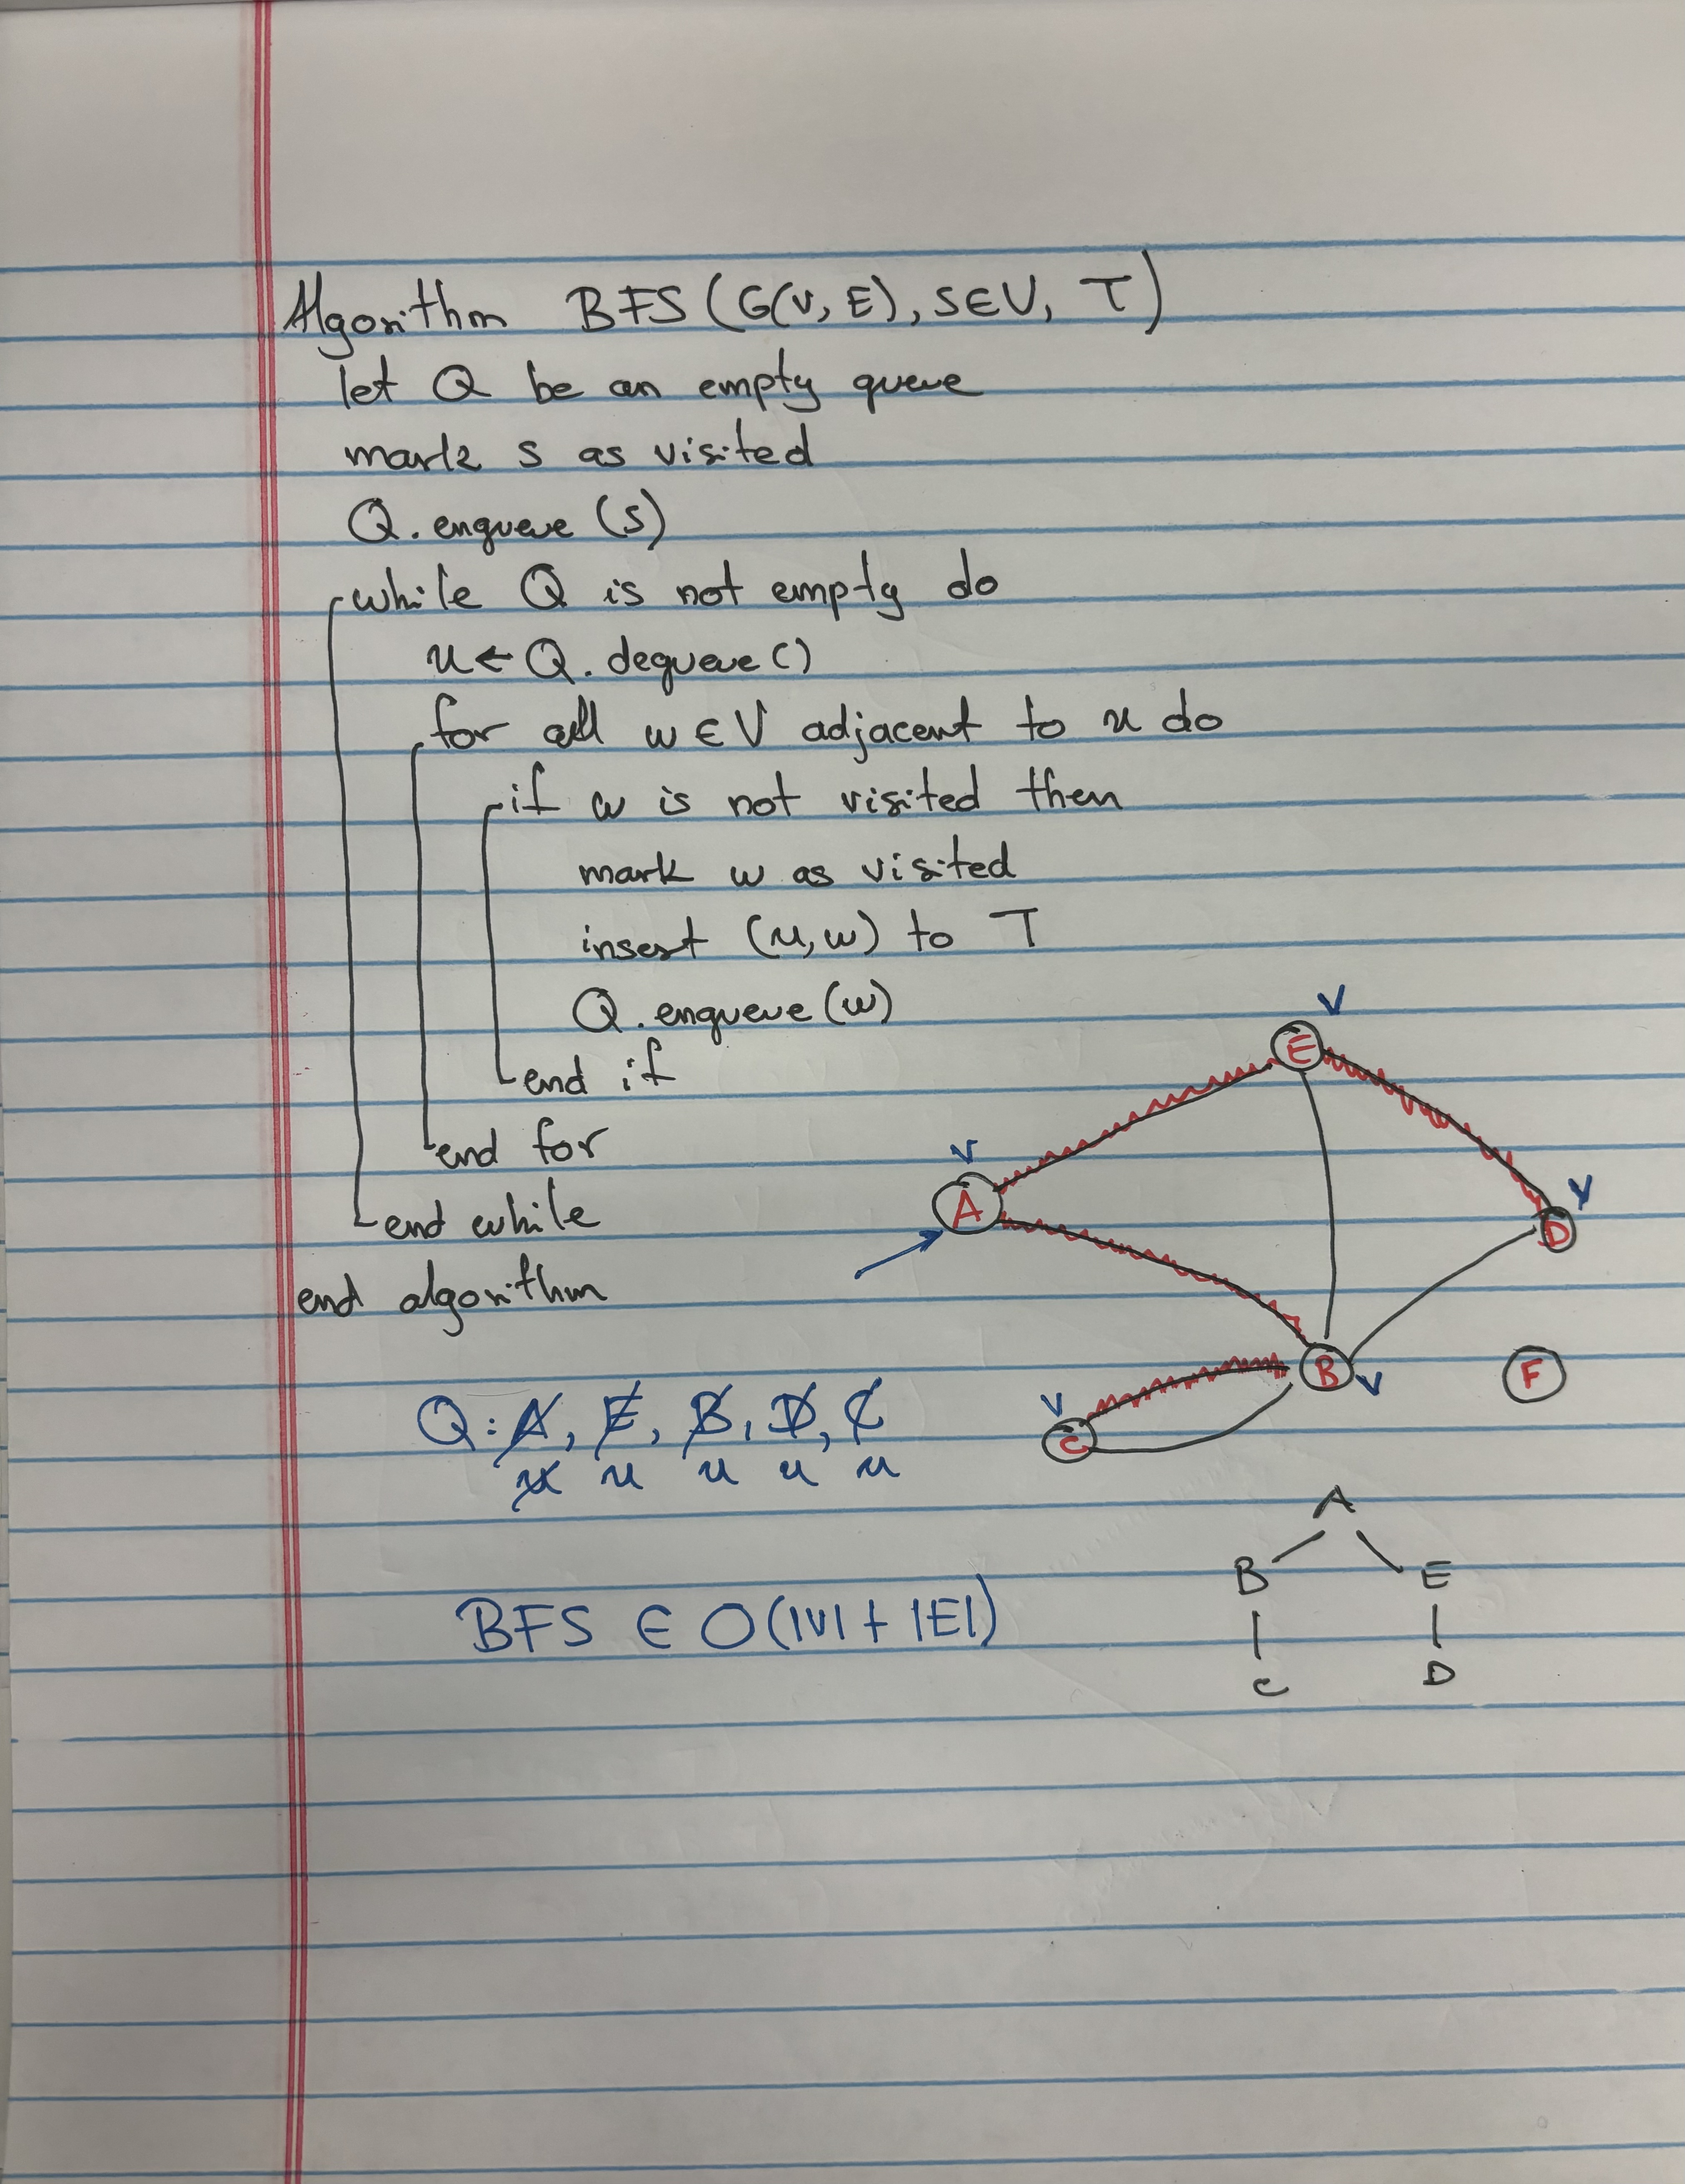 Algorithm BFS (G(V, E), S∈V, T)
let Q be an empty queue
mark s as visited
Q.enqueue (s)
while Q is not empty do
u ← Q.dequeue()
for all w ∈ V adjacent to u do
if w is not visited then
mark w as visited
insert (u, w) to T
Q.enqueue (w)
end if
end for
end while
end algorithm
V
E
V
A
V
D
B
V
F
V
C
Q: A, E, B, D, C
u u u u u
A
B E
C D
BFS ∈ O(|V| + |E|)